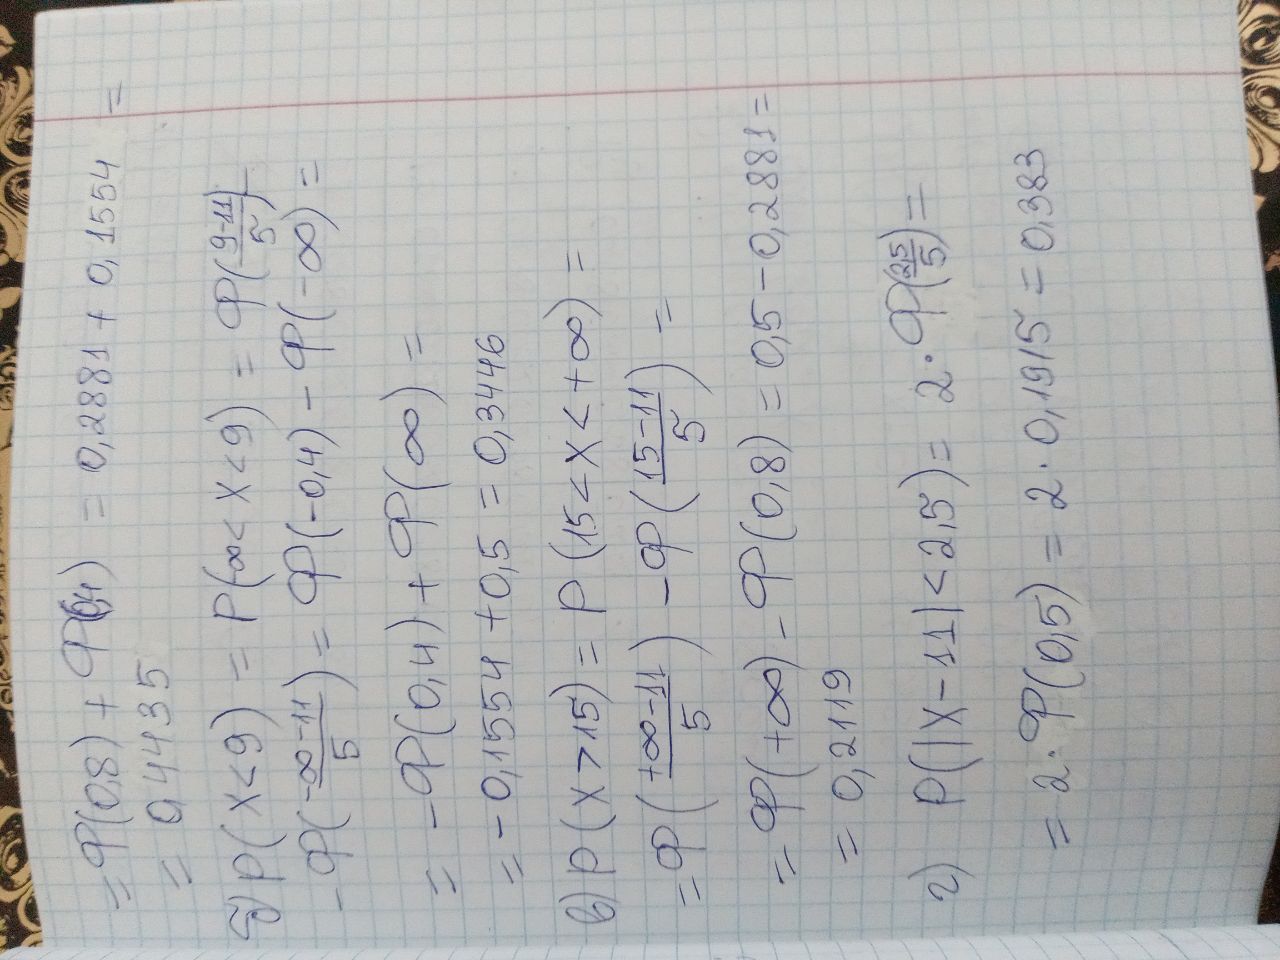 = Ф(0,8) + Ф(0,4) = 0,2881 + 0,1554 =
= 0,4435
б) P(X<9) = P(-∞<X<9) = Ф(9-11/5)-
- Ф(-∞-11/5) = Ф(-0,4) - Ф(-∞) =
= -Ф(0,4) + Ф(∞) =
= -0,1554 + 0,5 = 0,3446
в) P(X>15) = P(15<X<+∞) =
= Ф(+∞-11/5) - Ф(15-11/5) =
= Ф(+∞) - Ф(0,8) = 0,5 - 0,2881 =
= 0,2119
г) P(|X-11|<2,5) = 2·Ф(2,5/5) =
= 2·Ф(0,5) = 2·0,1915 = 0,383